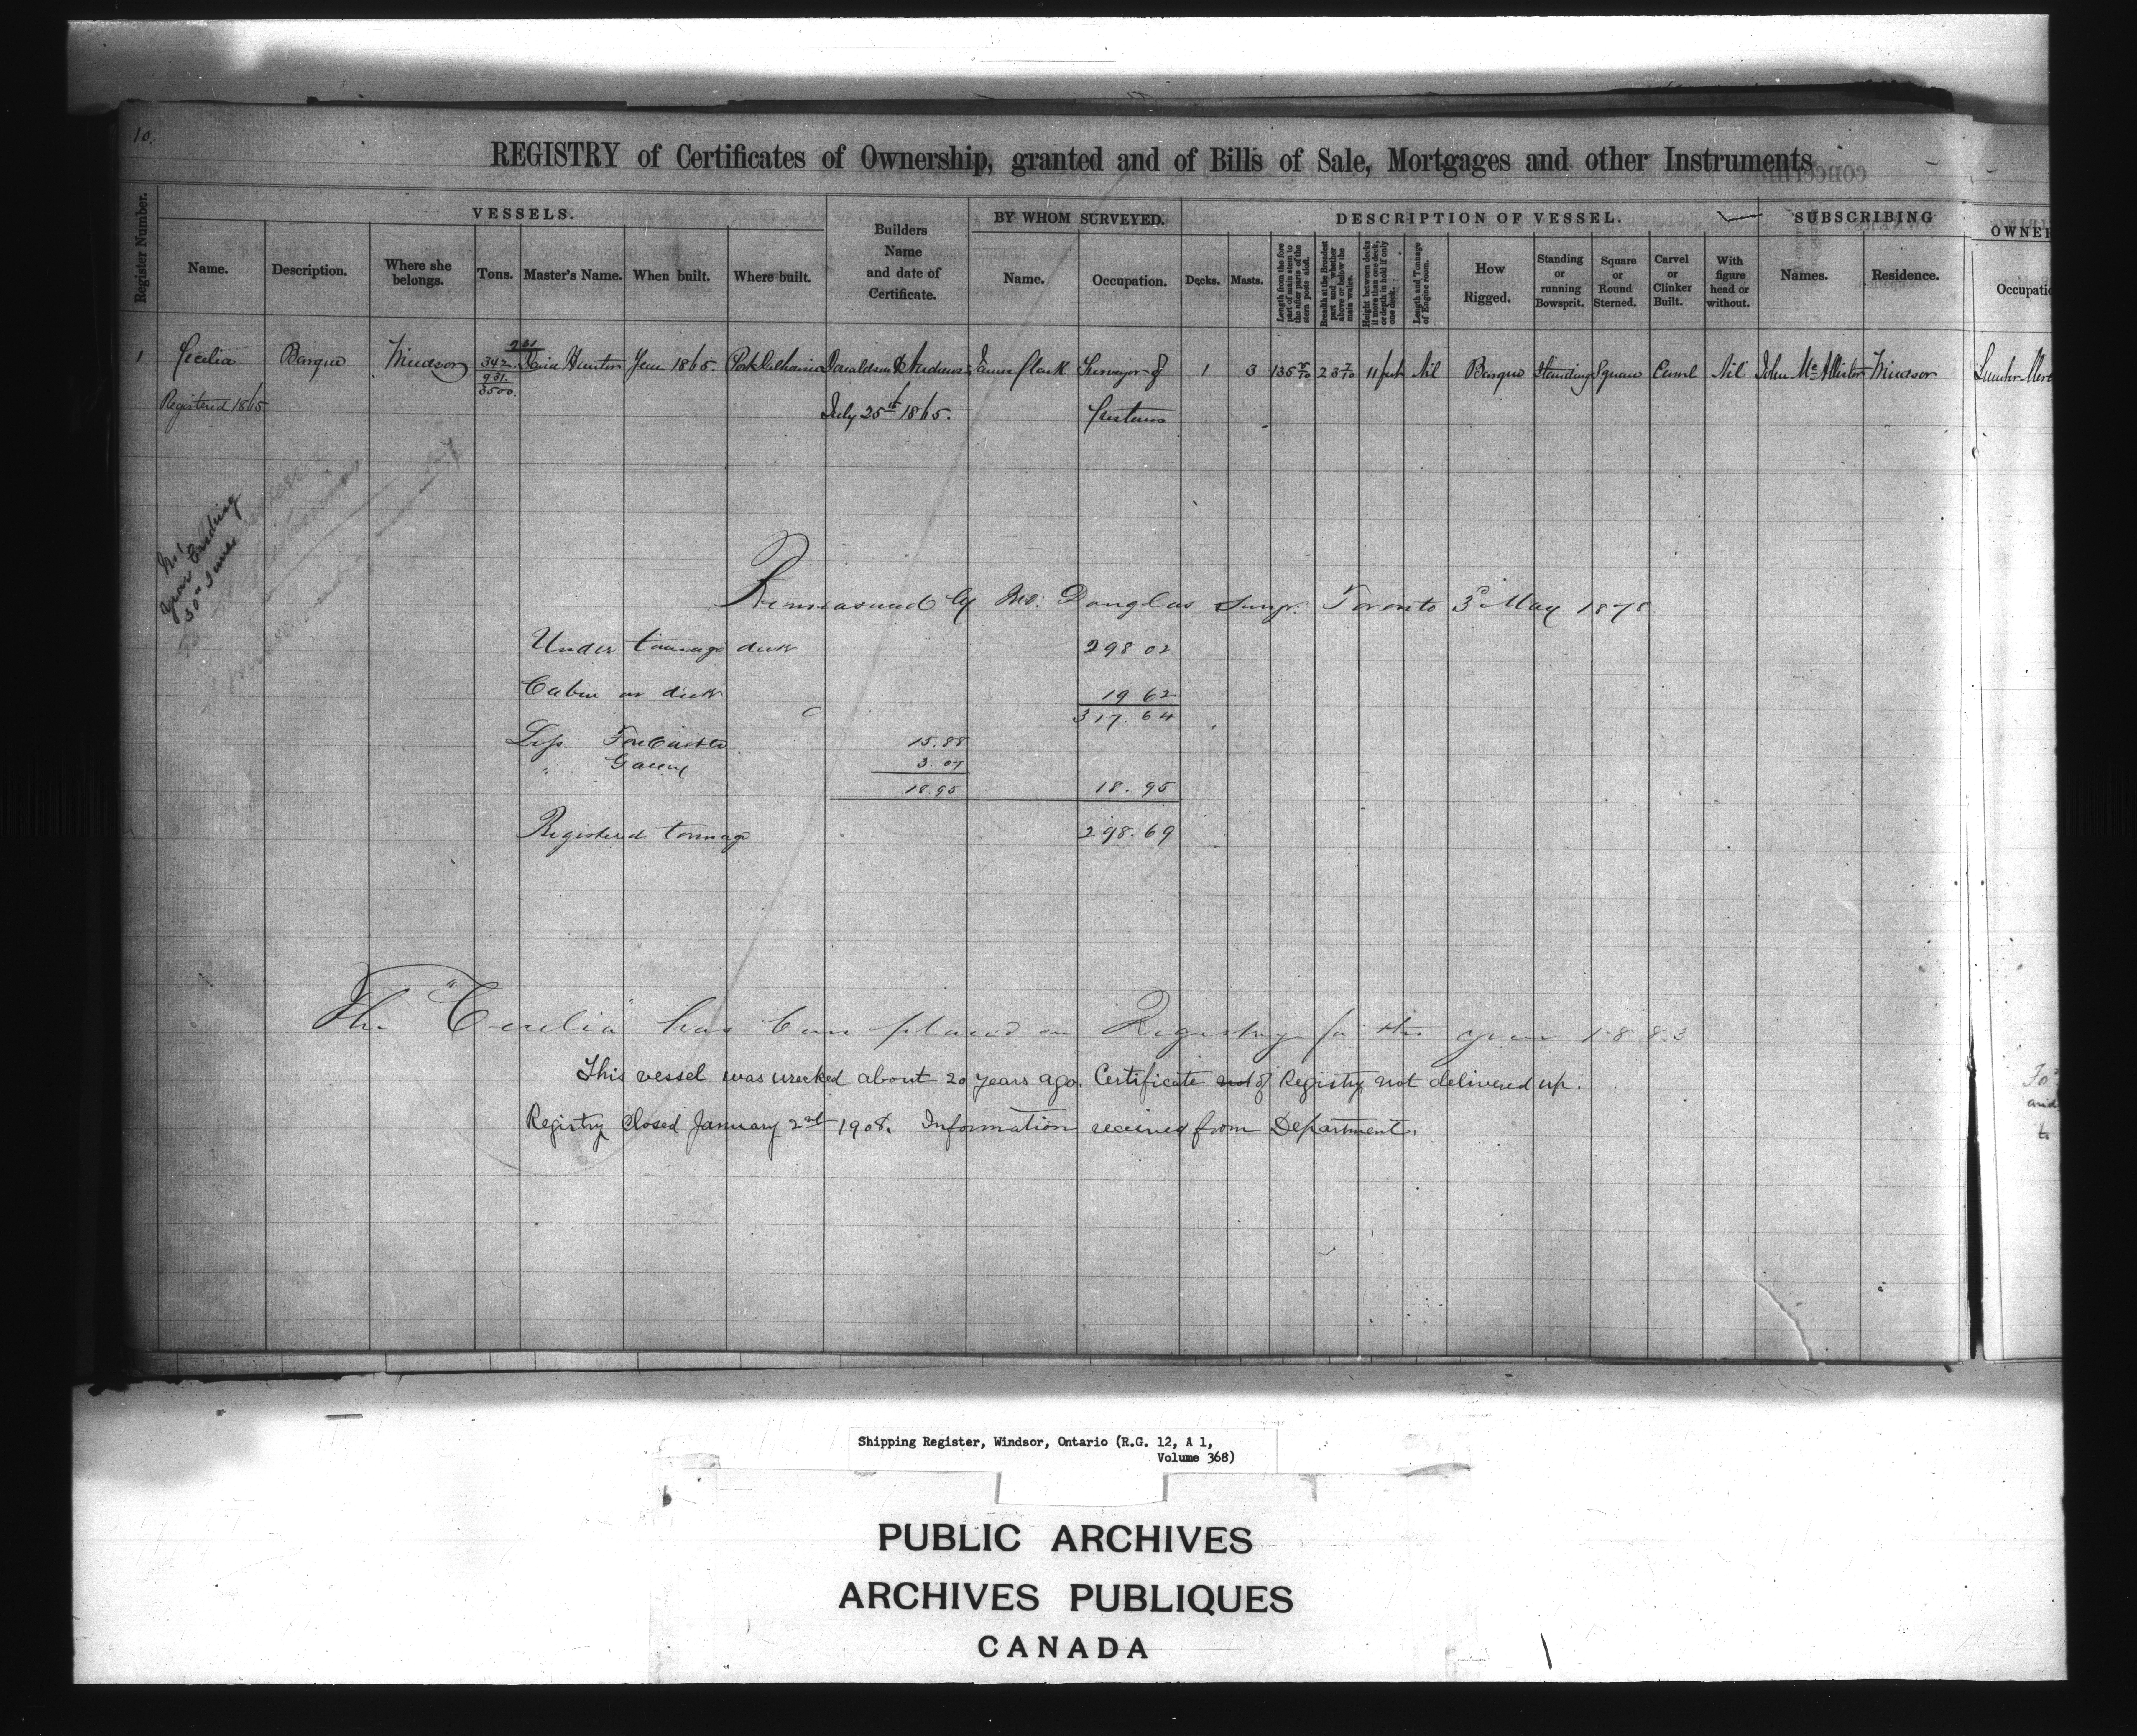 10.
REGISTRY of Certificates of Ownership, granted and of Bills of Sale, Mortgages and other Instruments
concerning
Register Number.
VESSELS.
Name.
Description.
Where she belongs.
Tons.
Master's Name.
When built.
Where built.
Builders Name and date of Certificate.
BY WHOM SURVEYED.
Name.
Occupation.
DESCRIPTION OF VESSEL.
Decks.
Masts.
Length from the fore part of main stem to the after parts of the stern posts aloft.
Breadth at the Broadest part and whether above or below the main wales.
Height between decks if more than one deck, or depth in hold if only one deck.
Length and Tonnage of Engine room.
How Rigged.
Standing or running Bowsprit.
Square or Round Sterned.
Carvel or Clinker Built.
With figure head or without.
SUBSCRIBING
Names.
Residence.
OWNE
Occupatio
1 Cecilia Barque Windsor 342 931 3500 Hunter Year 1865. Port Dalhousie Donaldson & Andrews James Clark Surveyor of 1 3 135 23 11 feet Nil Barque Standing Square Carvel Nil John McAllister Windsor Lumber Merc
Registered 1865
July 25th 1865.
Customs
No 1
Year Ending
30th June
Remeasured by Douglas Survr. Toronto 3d May 1878
Under tonnage deck 298.02
Cabin on deck 19 62
317.64
Less Forecastle 15.88
" Galley 3.07
18.95 18.95
Registered tonnage 298.69
The "Cecilia" has been placed on Registry for the year 1883
This vessel was wrecked about 20 years ago. Certificate not of Registry not delivered up.
Registry Closed January 2nd 1908. Information received from Department.
Shipping Register, Windsor, Ontario (R.G. 12, A 1,
Volume 368)
PUBLIC ARCHIVES
ARCHIVES PUBLIQUES
CANADA